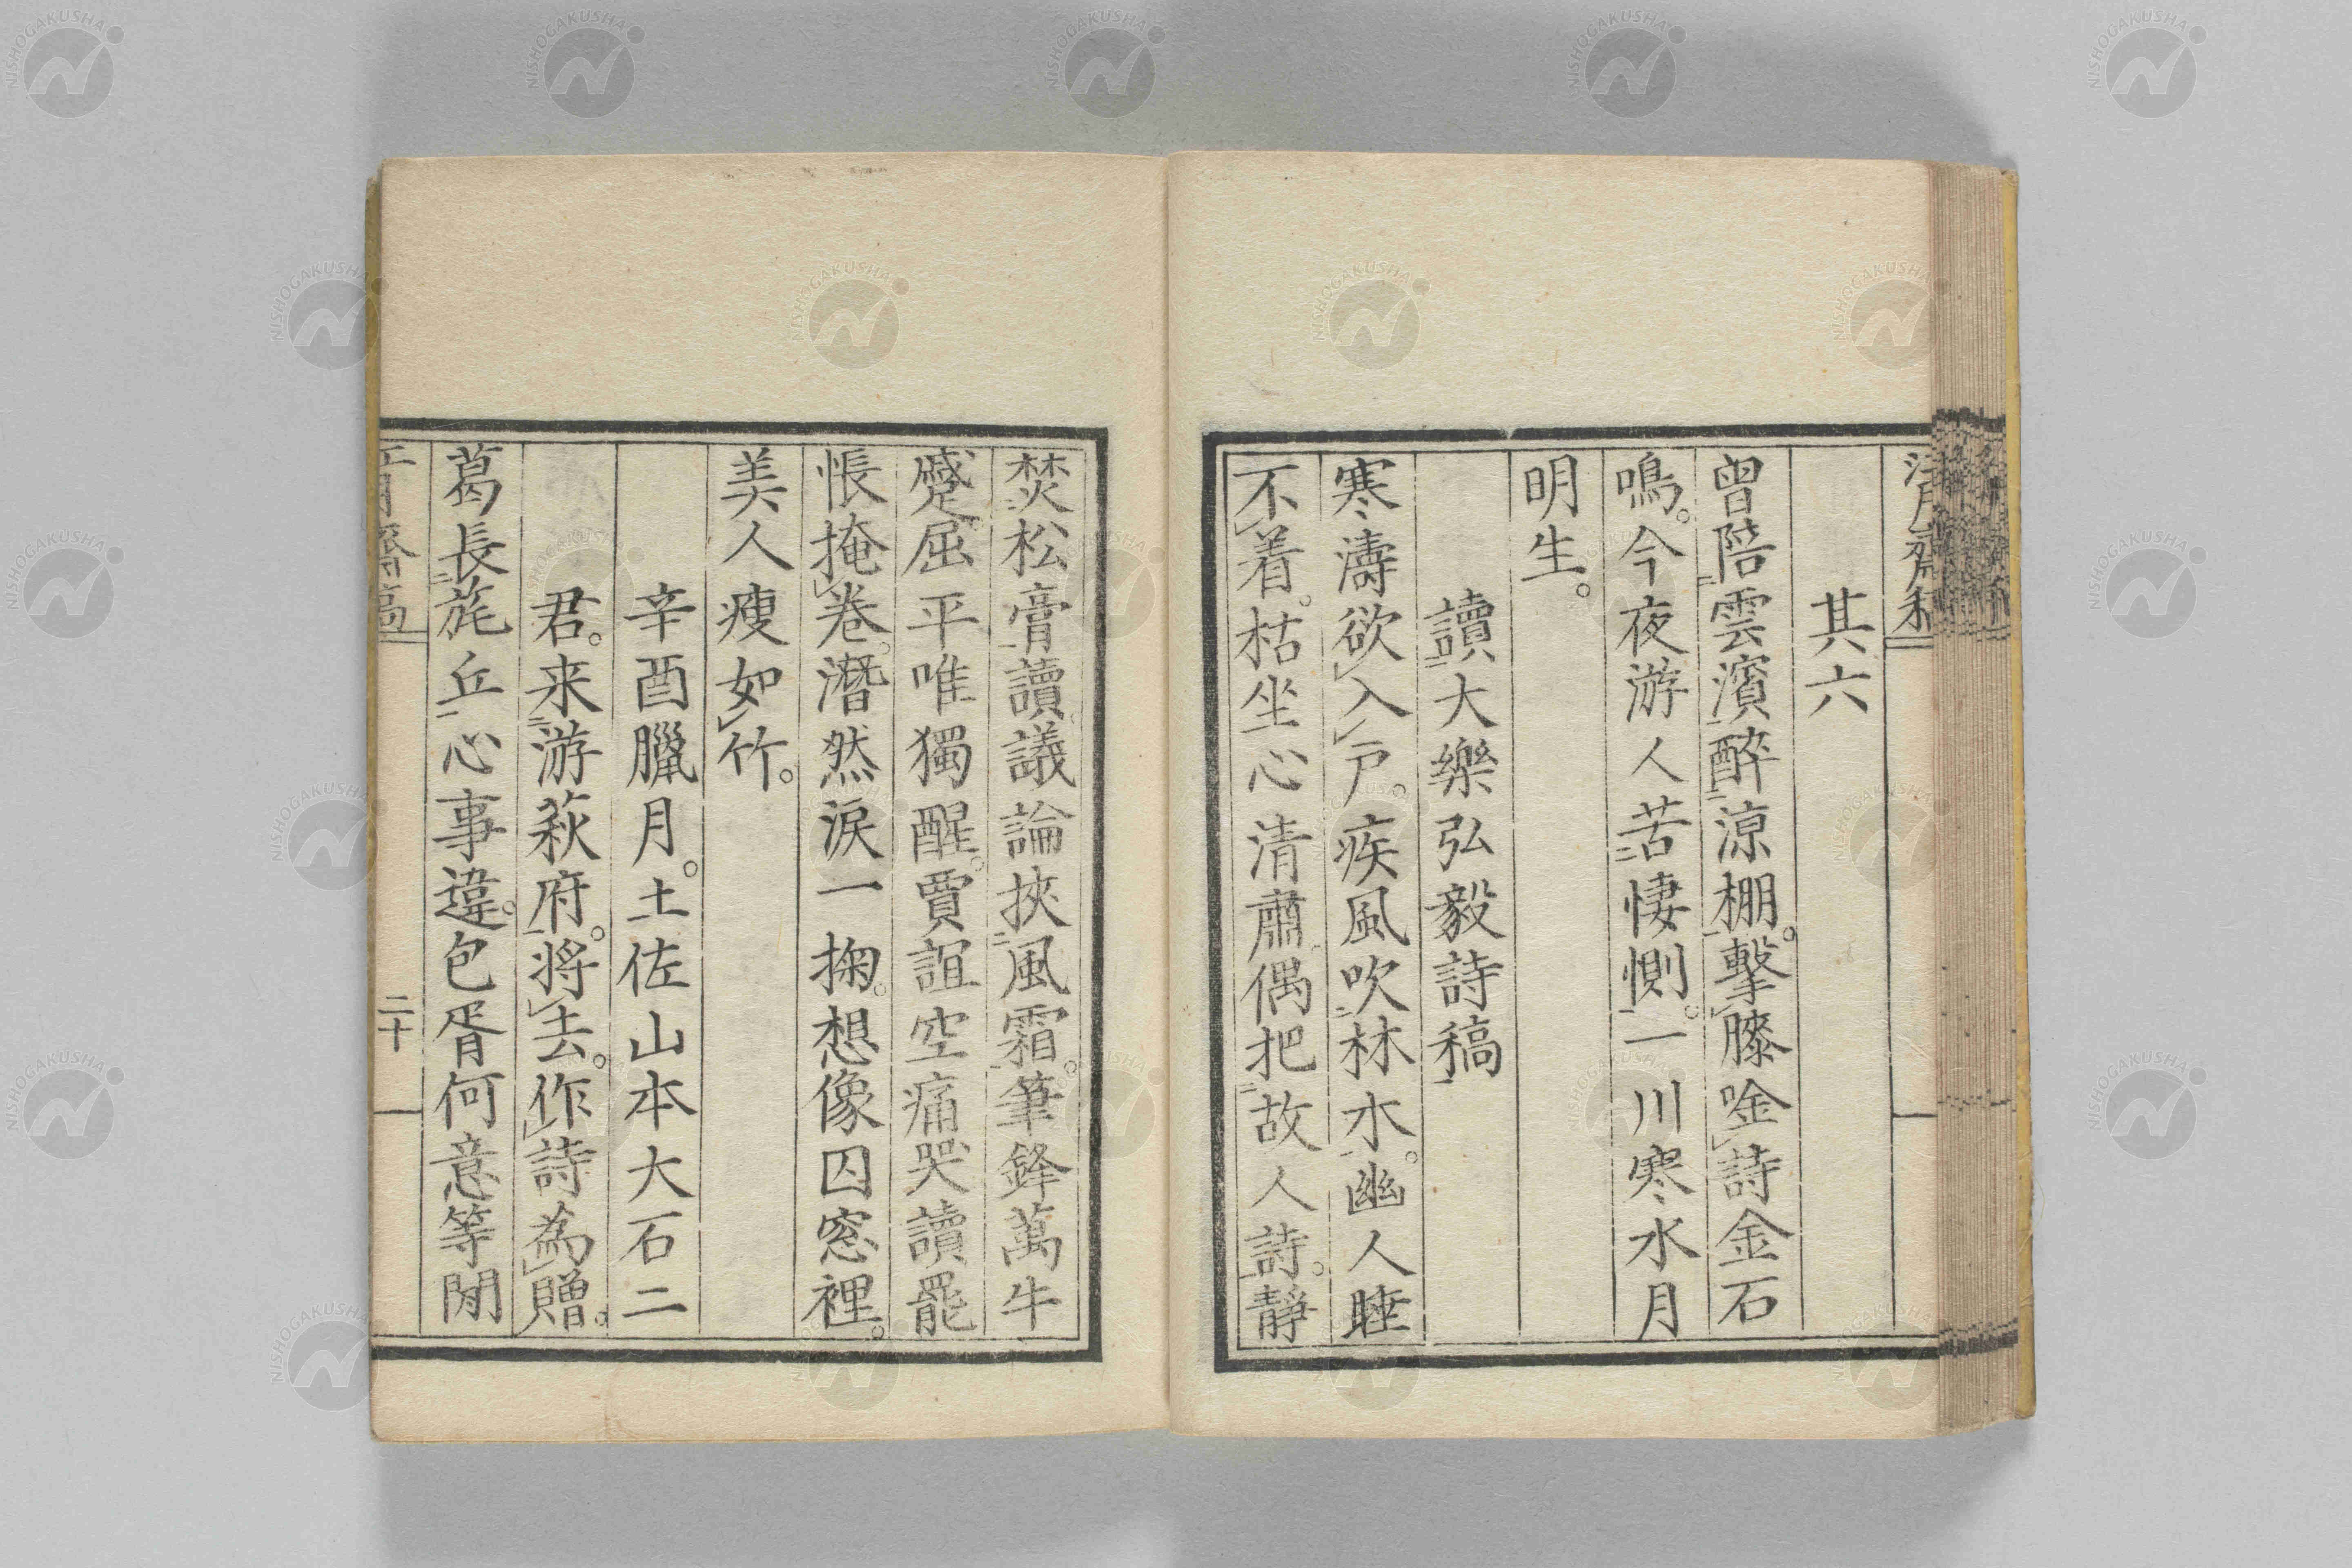 其六
曽陪雲濱醉涼棚。擊膝唫詩金石
鳴。今夜游人苦悽惻。一川寒水月
明生。
讀大樂弘毅詩稿
寒濤欲入戶。疾風吹林水。幽人睡
不着。枯坐心清肅。偶把故人詩。靜
焚松膏讀。議論挾風霜。筆鋒萬牛
蹙。屈平唯獨醒。賈誼空痛哭。讀罷
悵掩卷。潛然淚一掬。想像囚窓裡。
美人瘦如竹。
辛酉臘月。土佐山本大石二
君。来游萩府。將去。作詩為贈。
葛長旄丘心事違。包胥何意等閒
二十
NISHOGAKUSHA